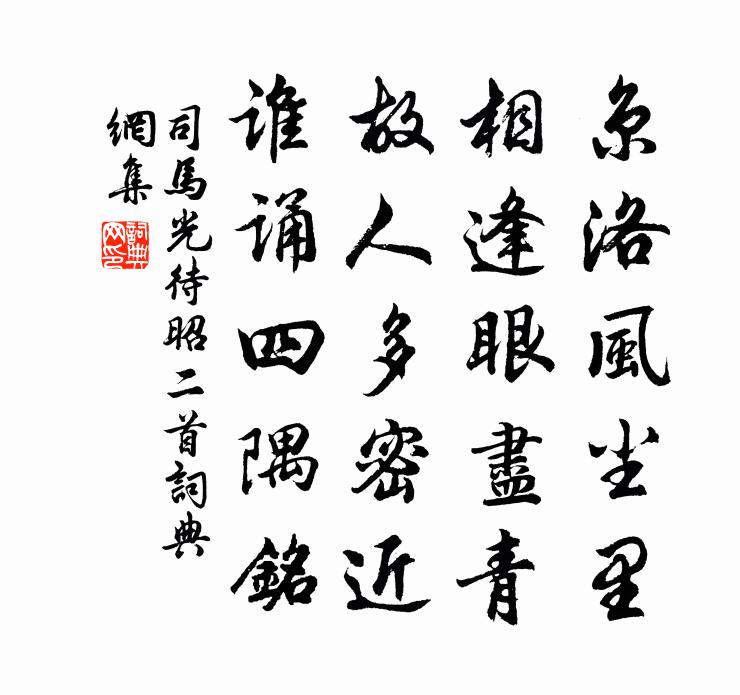 京洛風尘里
相逢眼盡青
故人多密近
谁诵四隅銘
司馬光待昭二首詞典
網集
詞典
网印